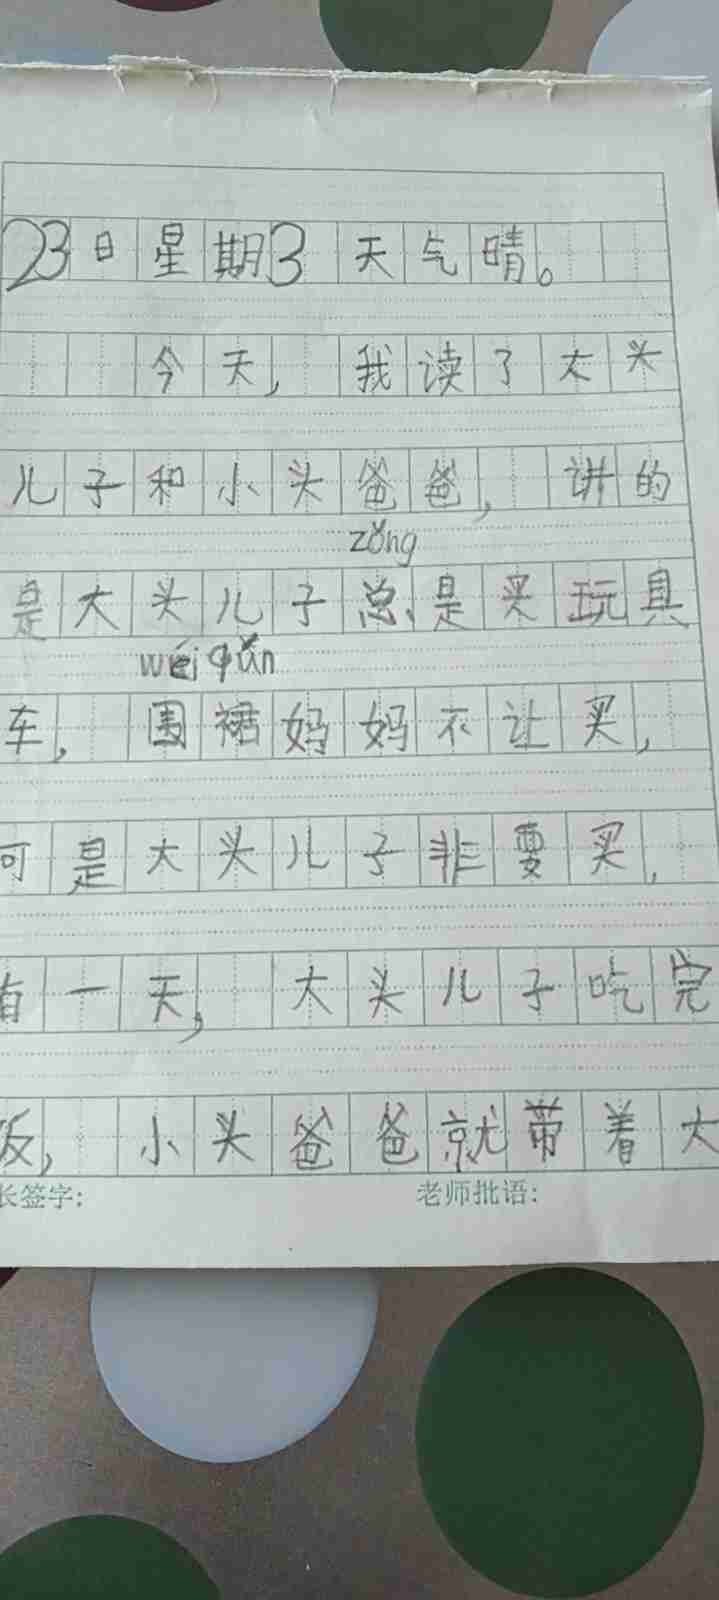 23日星期3 天气晴。
今天，我读了大头
儿子和小头爸爸，讲的
zǒng
是大头儿子总是买玩具
wéi qún
车，围裙妈妈不让买，
可是大头儿子非要买，
有一天，大头儿子吃完
饭，小头爸爸就带着大
长签字: 老师批语: